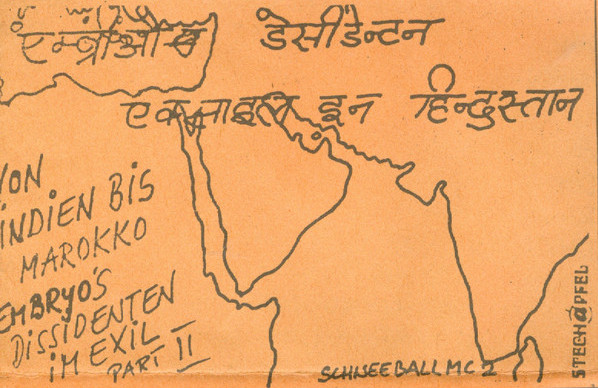 एम्ब्रीऔस डेसीडेन्टन
एकजाइल इन हिन्दुस्तान
VON
INDIEN BIS
MAROKKO
EMBRYO'S
DISSIDENTEN
iM EXIL
PART II
SCHNEEBALL MC 2
STECH@PFEL